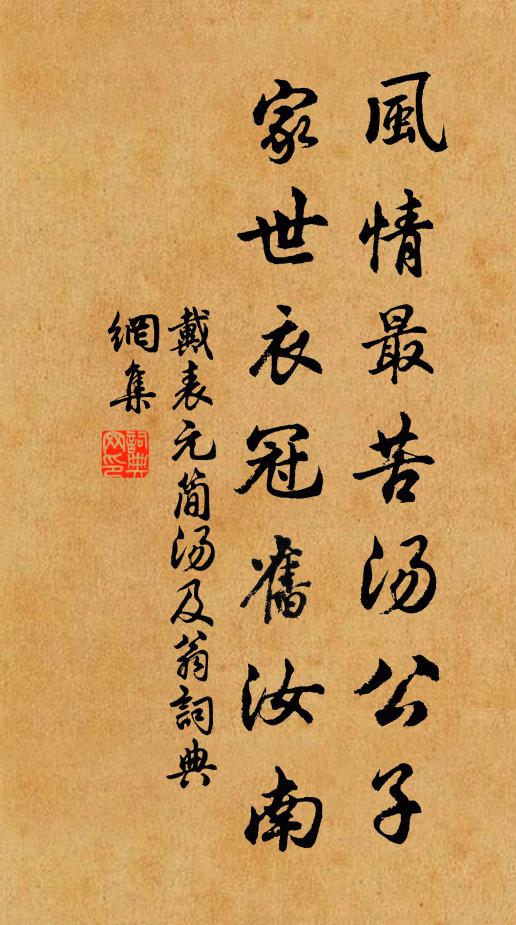 風情最苦汤公子
家世衣冠舊汝南
戴表元简汤及翁詞典
網集
詞典
网印